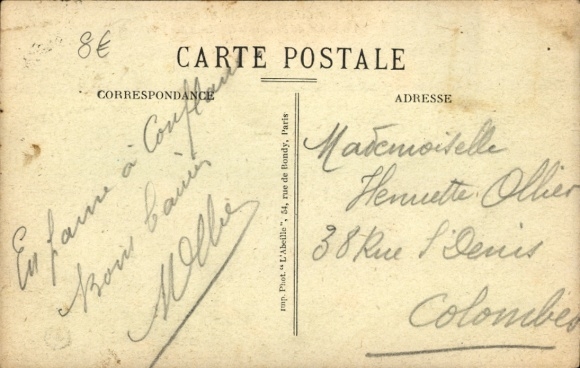 8€
CARTE POSTALE
CORRESPONDANCE
ADRESSE
En panne à Conflans
Bons baisers
MOllier
Imp. Phot. "L'Abeille", 54, rue de Bondy, Paris
Mademoiselle
Henriette Ollier
38 Rue St Denis
Colombes